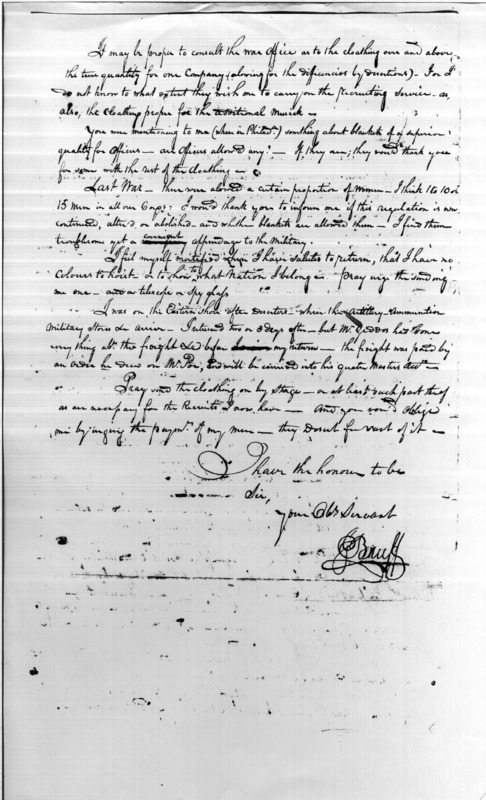 It may be proper to consult the war office as to the cloathing over and above
the true quantity for one Company (allowing for the deficiencies by desertions) - For I
do not know to what extent they wish me to carry on the Recruiting Service - as
also, the Cloathing proper for the additional Musick -
You were mentioning to me (when in Philada.) something about blankets of a superior
quality for officers - are officers allowed any? - If they are, they would thank you
for some with the rest of the cloathing -
Last War - there were allowed a certain proportion of women - I think 1 to 10 or
15 men in all our Corps: I would thank you to inform me if this regulation is now
continued, alter'd, or abolish'd - and whether blankets are allowed them - I find them
troublesome yet a appendage to the Military.
I feel myself mortified when I have salutes to return, that I have no
Colours to hoist - or to show to what Nation I belong - Pray urge the sending
me one - and a telescope or Spy glass
I was on the Eastern Shore after deserters - when the Artillery Ammunition
Military Stores &c arrived - I returned two or 3 days after - but Mr. Geddes had done
every thing all the freight &c before my return - the freight was paid by
an order he drew on Mr. and will be carried into his quarter Masters Acct.
Pray send the cloathing on by Stage - or at least such part thereof
as are necessary for the Recruits I now have - And you wou'd oblige
me by urging the paymt. of my men - they Desert for want of it -
I have the honour to be
Sir,
your Obt. Servant
Bruff